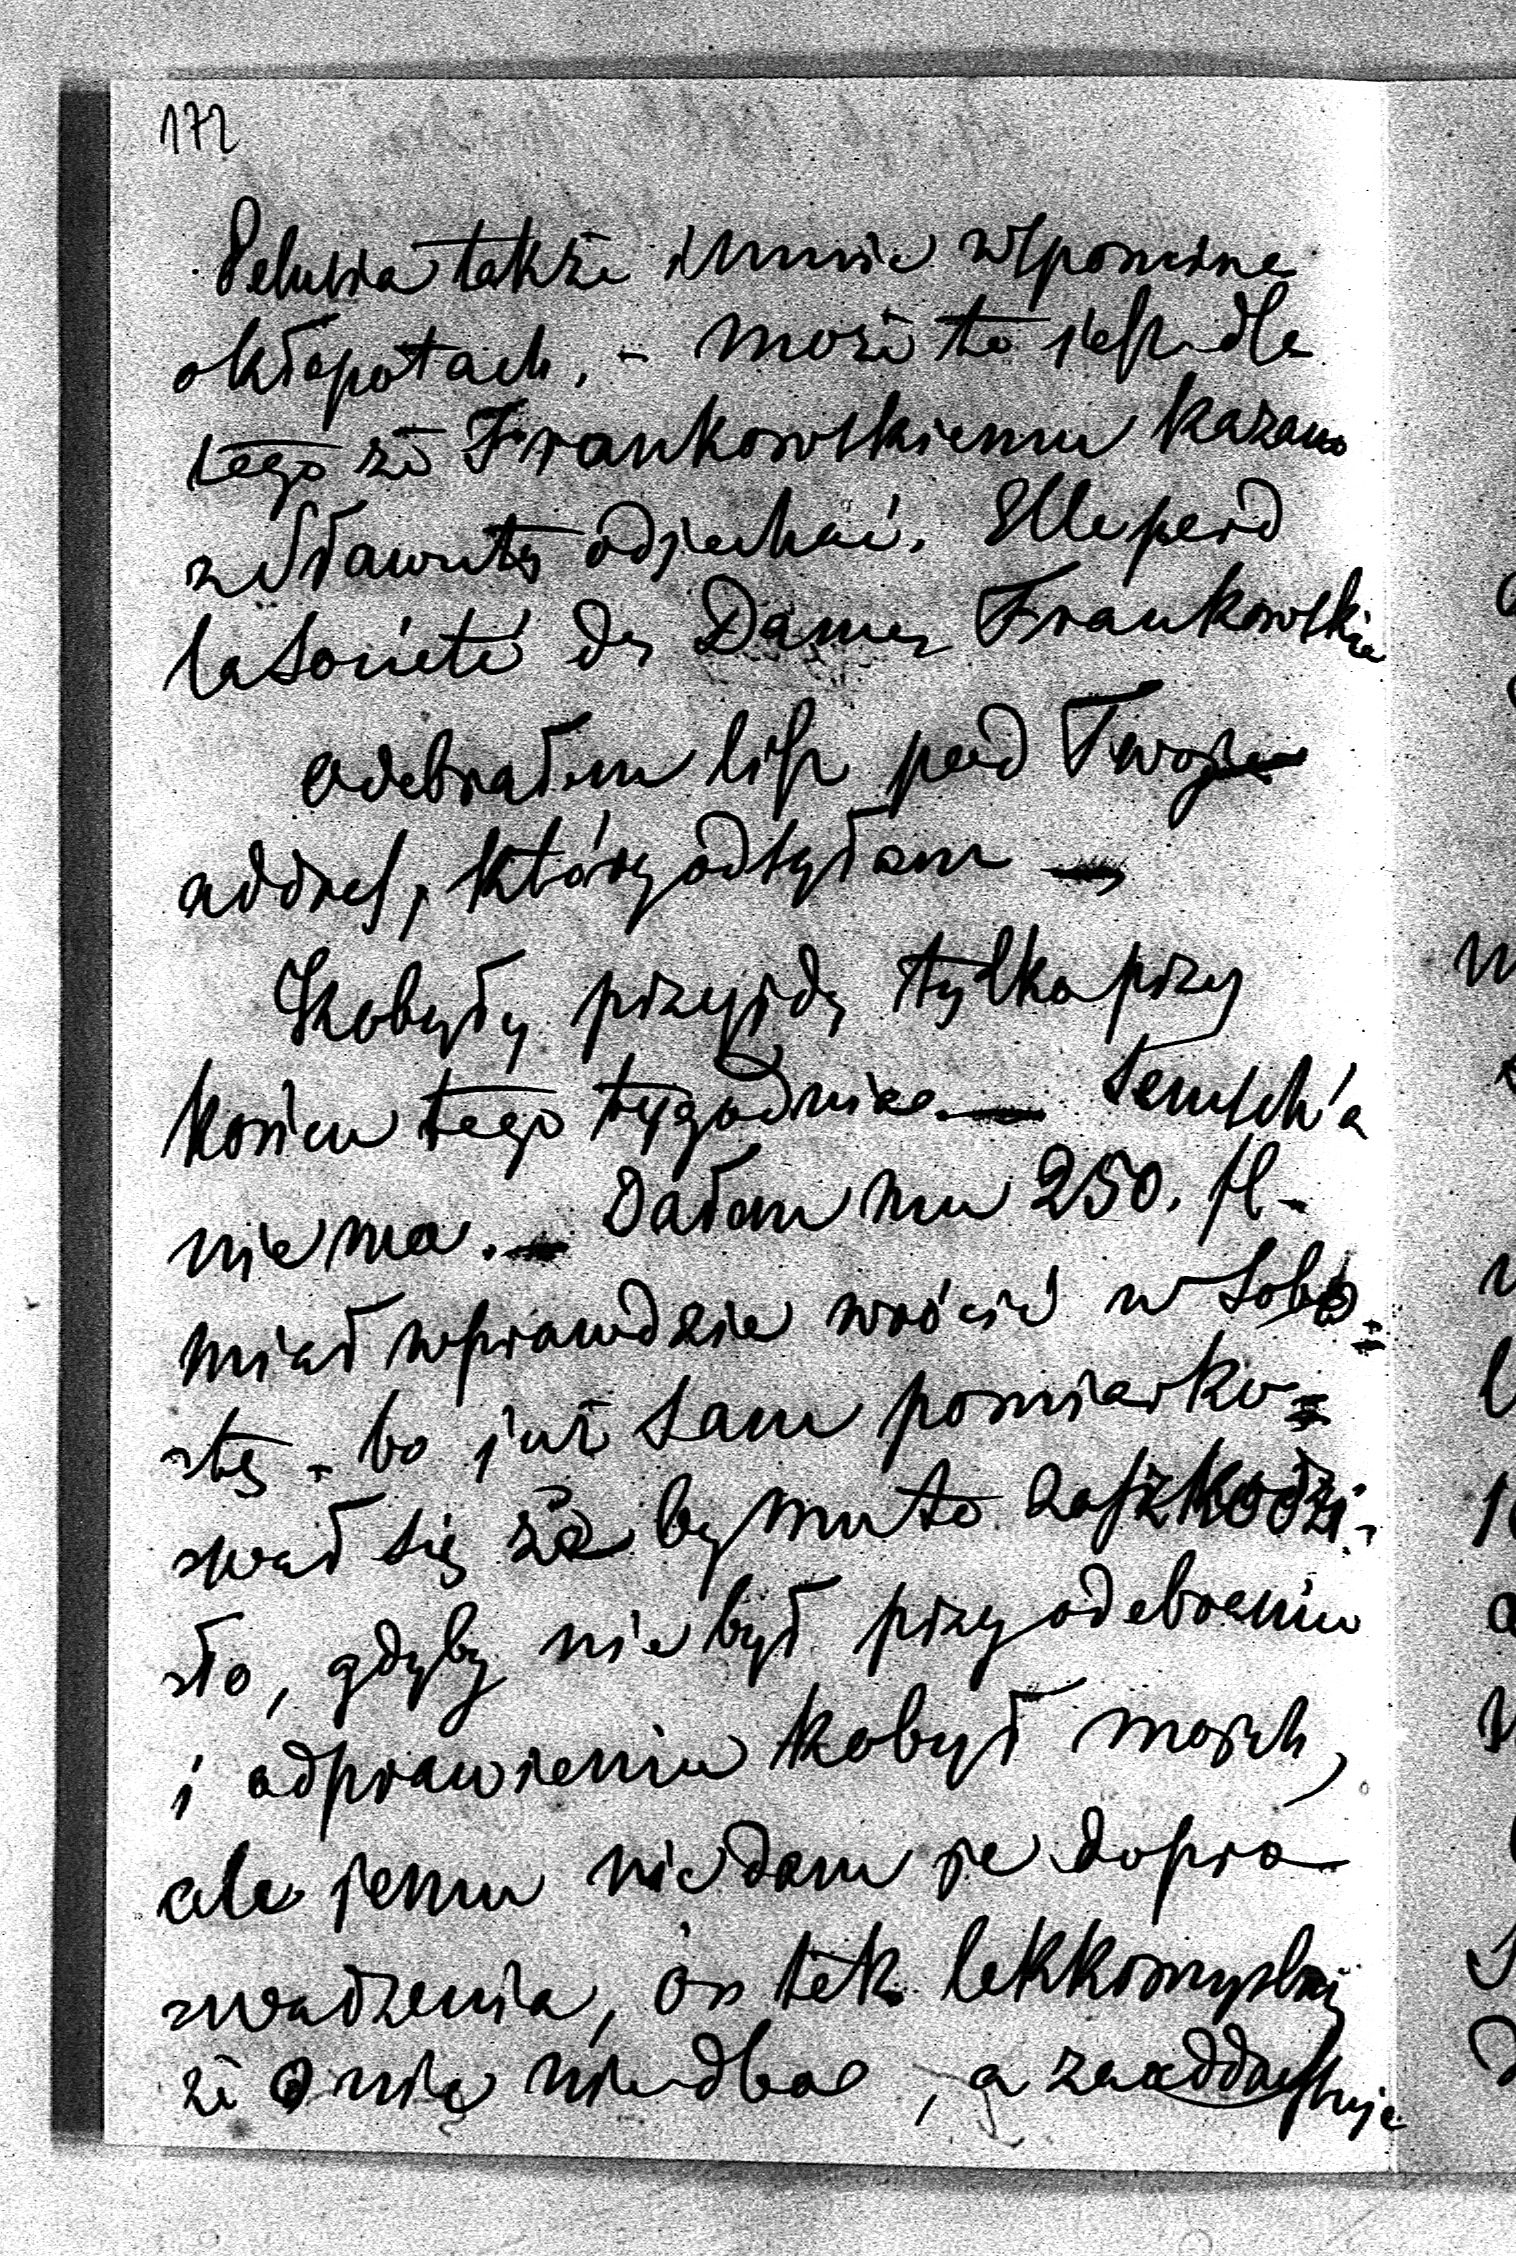 172
Pelunia także i mnie wspomina
o kłopotach. - może to jest dla
tego że Frankowskiemu kazano
z Sławuty odjechać. Elle perd
la Société des Dames Frankowskie
odebrałem list pod Twoje
addres, który odsyłam —
Kobyły przyjdą tylko przy
końcu tego tygodnia. —
niema. — Dałem mu 250. fl -
miał wprawdzie wrócić w Sobo=
tę - bo już sam pomiarko=
wał się że by mu to zaszkodzi-
ło, gdyby nie był przy odebraniu
i odprawieniu kobył moich,
ale jemu nie dam je dopro-
wadzenia, on tak lekkomyślny
że o nic niedba, a zaaddressuję